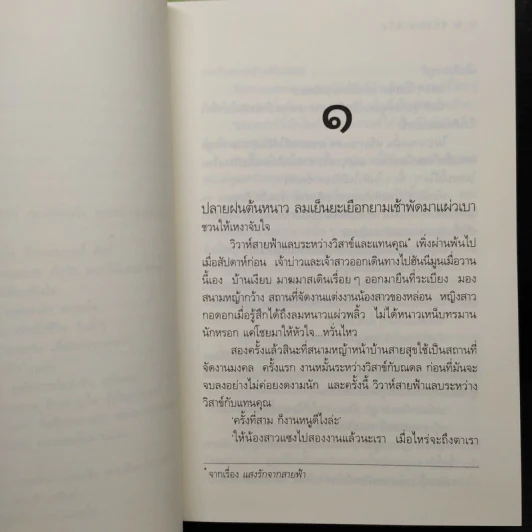 ๑
ปลายฝนต้นหนาว ลมเย็นยะเยือกยามเช้าพัดมาแผ่วเบา
ชวนให้เหงาจับใจ
วิวาห์สายฟ้าแลบระหว่างวิสาข์และแทนคุณ* เพิ่งผ่านพ้นไป
เมื่อสัปดาห์ก่อน เจ้าบ่าวและเจ้าสาวออกเดินทางไปฮันนีมูนเมื่อวาน
นี้เอง บ้านเงียบ มาฆมาสเดินเรื่อยๆ ออกมายืนที่ระเบียง มอง
สนามหญ้ากว้าง สถานที่จัดงานแต่งงานน้องสาวของหล่อน หญิงสาว
กอดอกเมื่อรู้สึกได้ถึงลมหนาวแผ่วพลิ้ว ไม่ได้หนาวเหน็บทรมาน
นักหรอก แค่โชยมาให้หัวใจ...หวั่นไหว
สองครั้งแล้วสินะที่สนามหญ้าหน้าบ้านสายสุขใช้เป็นสถานที่
จัดงานมงคล ครั้งแรก งานหมั้นระหว่างวิสาข์กับณดล ก่อนที่มันจะ
จบลงอย่างไม่ค่อยงดงามนัก และครั้งนี้ วิวาห์สายฟ้าแลบระหว่าง
วิสาข์กับแทนคุณ
'ครั้งที่สาม ก็งานหนูดีไงล่ะ'
'ให้น้องสาวแซงไปสองงานแล้วนะเรา เมื่อไหร่จะถึงตาเรา
* จากเรื่อง แสงรักจากสายฟ้า